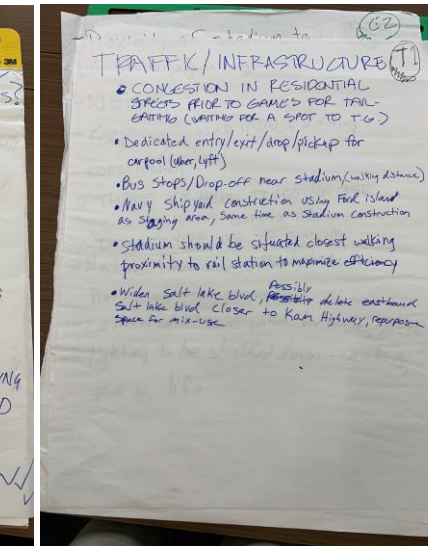 3M
S?
NG
D
G2
TRAFFIC/INFRASTRUCTURE T1
• CONGESTION IN RESIDENTIAL
STREETS PRIOR TO GAMES FOR TAIL-
GATING (WAITING FOR A SPOT TO T.G)
• Dedicated entry/exit/drop/pickup for
carpool (uber, Lyft)
• Bus Stops/Drop-off near stadium, (walking distance)
• Navy Shipyard construction using Ford island
as staging area, same time as Stadium construction
• Stadium should be situated closest walking
proximity to rail station to maximize efficiency
• Widen Salt lake blvd, Possibly delete eastbound
Salt lake blvd closer to Kam Highway, repurpose
space for mix-use